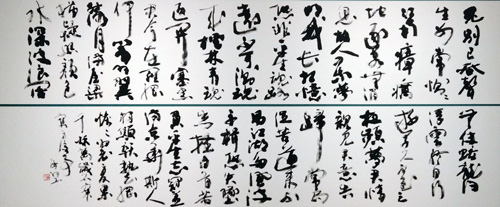 死别已吞聲
生别常恻恻
江南瘴癘
地逐客無消
息故人入我夢
明我長相憶
恐非平生魂路
遠不可測魂
來楓林青魂
返關塞黑
君今在羅網
何以有羽翼
落月滿屋梁
猶疑照顏色
水深波浪闊
無使蛟龍得
浮雲終日行
遊子久不至三
夜頻夢君情
親見君意告
歸常局
促苦道來不
易江湖多風波
舟楫恐失墜
出門搔白首若
負平生志冠蓋
滿京華斯人
獨憔悴孰云網
恢恢將老身反累
千秋萬歲名
寂寞身後事